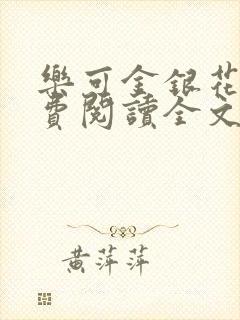 樂可金銀花
費閱讀全文
黃萍萍